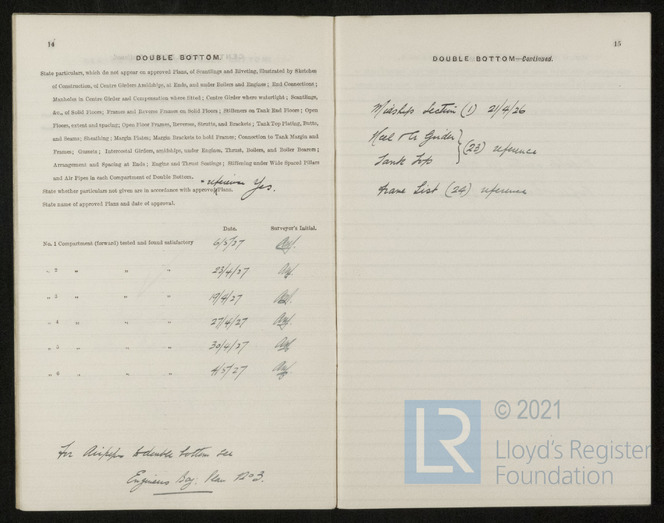 14
DOUBLE BOTTOM.
State particulars, which do not appear on approved Plans, of Scantlings and Riveting, illustrated by Sketches
of Construction, of Centre Girders Amidships, at Ends, and under Boilers and Engines; End Connections;
Manholes in Centre Girder and Compensation where fitted; Centre Girder where watertight; Scantlings,
&c., of Solid Floors; Frames and Reverse Frames on Solid Floors; Stiffeners on Tank End Floors; Open
Floors, extent and spacing; Open Floor Frames, Reverses, Struts, and Brackets; Tank Top Plating, Butts,
and Seams; Sheathing; Margin Plates; Margin Brackets to hold Frames; Connection to Tank Margin and
Frames; Gussets; Intercostal Girders, amidships, under Engines, Thrust, Boilers, and Boiler Bearers;
Arrangement and Spacing at Ends; Engine and Thrust Seatings; Stiffening under Wide Spaced Pillars
and Air Pipes in each Compartment of Double Bottom.
+ reference Yes.
State whether particulars not given are in accordance with approved Plans.
State name of approved Plans and date of approval.
Date. Surveyor's Initial.
No. 1 Compartment (forward) tested and found satisfactory 6/5/27
„ 2 „ „ „ 23/4/27
„ 3 „ „ „ 19/4/27
„ 4 „ „ „ 27/4/27
„ 5 „ „ „ 30/4/27
„ 6 „ „ „ 4/5/27
For Airpipes to double bottom see
Engineers Plan No 3.
15
DOUBLE BOTTOM—Continued.
Midship Section (1) 21/4/26
Keel & Cr Girder
Tank Top } (23) reference
Frame List (24) reference
LR © 2021
Lloyd's Register
Foundation